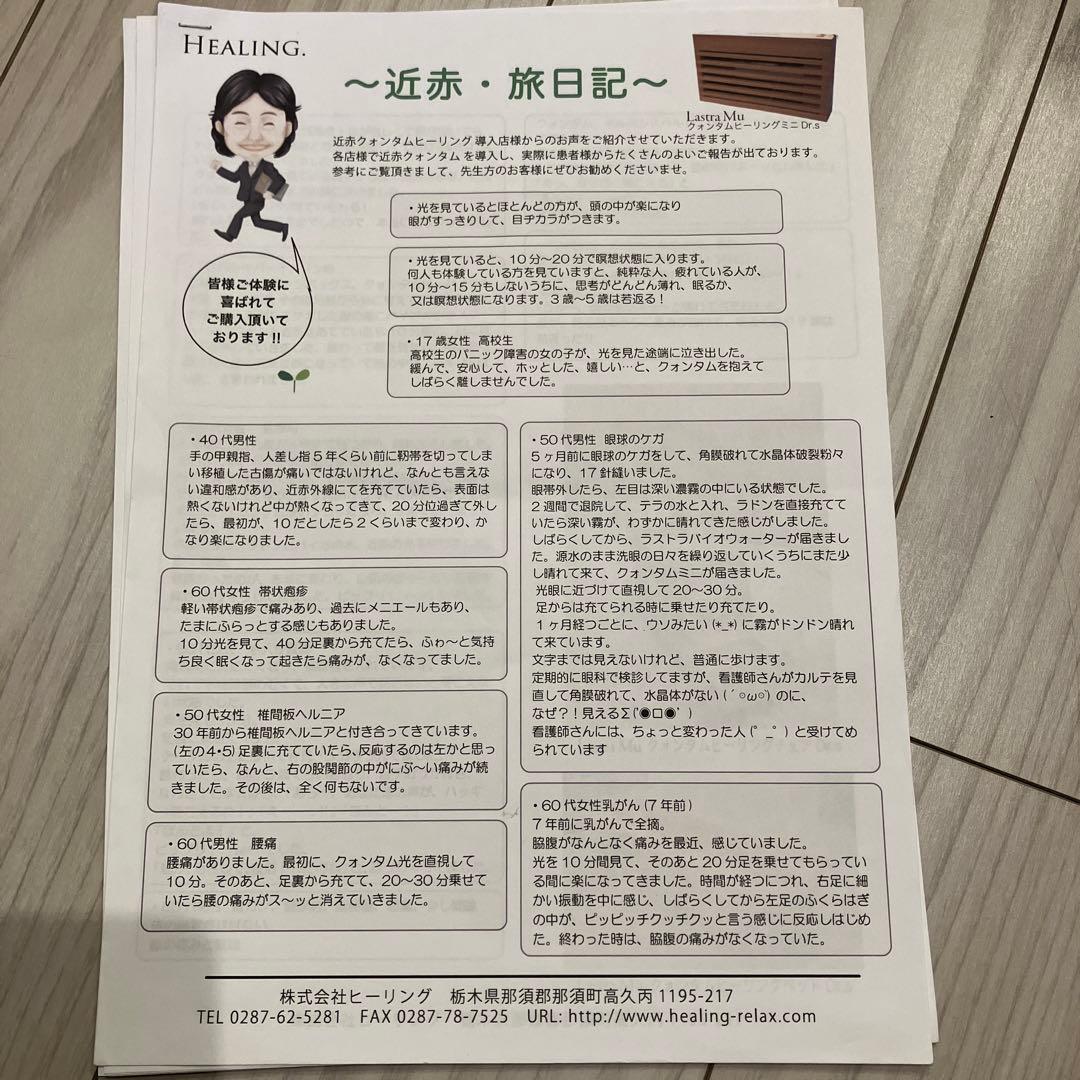 HEALING.
～近赤・旅日記～
Lastra Mu
クォンタムヒーリングミニ Dr.s
近赤クォンタムヒーリング 導入店様からのお声をご紹介させていただきます。
各店様で近赤クォンタム を導入し、実際に患者様からたくさんのよいご報告が出ております。
参考にご覧頂きまして、先生方のお客様にぜひお勧めくださいませ。
・光を見ているとほとんどの方が、頭の中が楽になり
眼がすっきりして、目ヂカラがつきます。
・光を見ていると、10分～20分で瞑想状態に入ります。
何人も体験している方を見ていますと、純粋な人、疲れている人が、
10分～15分もしないうちに、思考がどんどん薄れ、眠るか、
又は瞑想状態になります。3歳～5歳は若返る！
皆様ご体験に
喜ばれて
ご購入頂いて
おります!!
・17歳女性 高校生
高校生のパニック障害の女の子が、光を見た途端に泣き出した。
緩んで、安心して、ホッとした、嬉しい…と、クォンタムを抱えて
しばらく離しませんでした。
・40代男性
手の甲親指、人差し指5年くらい前に靭帯を切ってしま
い移植した古傷が痛いではないけれど、なんとも言えな
い違和感があり、近赤外線にてを充てていたら、表面は
熱くないけれど中が熱くなってきて、20分位過ぎて外し
たら、最初が、10だとしたら2くらいまで変わり、か
なり楽になりました。
・60代女性 帯状疱疹
軽い帯状疱疹で痛みあり、過去にメニエールもあり、
たまにふらっとする感じもありました。
10分光を見て、40分足裏から充てたら、ふゎ～と気持
ち良く眠くなって起きたら痛みが、なくなってました。
・50代女性 椎間板ヘルニア
30年前から椎間板ヘルニアと付き合ってきています。
(左の4・5)足裏に充てていたら、反応するのは左かと思っ
ていたら、なんと、右の股関節の中がにぶ～い痛みが続
きました。その後は、全く何もないです。
・60代男性 腰痛
腰痛がありました。最初に、クォンタム光を直視して
10分。そのあと、足裏から充てて、20～30分乗せて
いたら腰の痛みがス～ッと消えていきました。
・50代男性 眼球のケガ
5ヶ月前に眼球のケガをして、角膜破れて水晶体破裂粉々
になり、17針縫いました。
眼帯外したら、左目は深い濃霧の中にいる状態でした。
2週間で退院して、テラの水と入れ、ラドンを直接充てて
いたら深い霧が、わずかに晴れてきた感じがしました。
しばらくしてから、ラストラバイオウォーターが届きまし
た。源水のまま洗眼の日々を繰り返していくうちにまた少
し晴れて来て、クォンタムミニが届きました。
光眼に近づけて直視して20～30分。
足からは充てられる時に乗せたり充てたり。
1ヶ月経つごとに、ウソみたい(*_*)に霧がドンドン晴れ
て来ています。
文字までは見えないけれど、普通に歩けます。
定期的に眼科で検診してますが、看護師さんがカルテを見
直して角膜破れて、水晶体がない(´◎ω◎`)のに、
なぜ？！見えるΣ('◉⌓◉’)
看護師さんには、ちょっと変わった人(゜_゜)と受けてめ
られています
・60代女性乳がん(7年前)
7年前に乳がんで全摘。
脇腹がなんとなく痛みを最近、感じていました。
光を10分間見て、そのあと20分足を乗せてもらってい
る間に楽になってきました。時間が経つにつれ、右足に細
かい振動を中に感じ、しばらくしてから左足のふくらはぎ
の中が、ピッピッチクッチクッと言う感じに反応しはじめ
た。終わった時は、脇腹の痛みがなくなっていた。
株式会社ヒーリング 栃木県那須郡那須町高久丙1195-217
TEL 0287-62-5281 FAX 0287-78-7525 URL: http://www.healing-relax.com